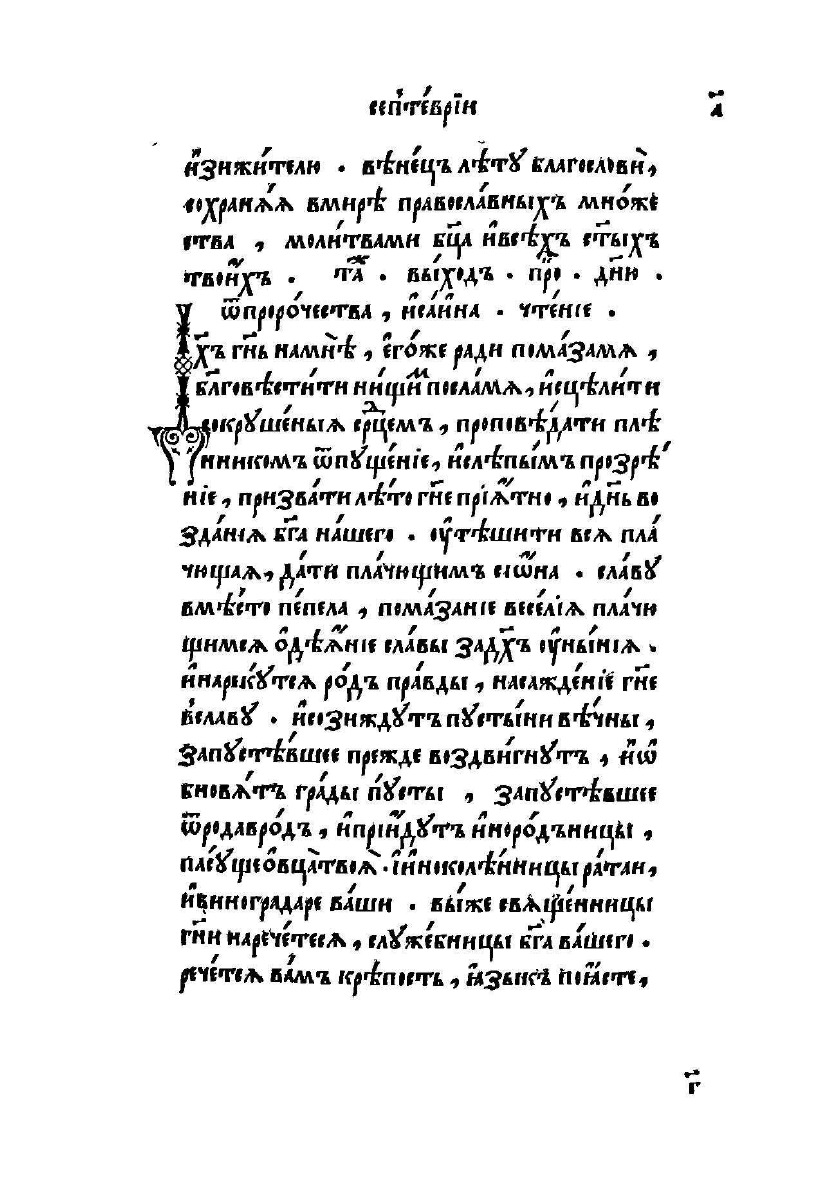 сеп҃те́врїи а҃
и҆зижи́телю . вѣне́цъ лѣ́тꙋ благослови̏,
сохранѧ́ѧ вмирѣ̀ правосла́вныхъ мно́же
ства , моли́твами бц҃а и҆всѣ́хъ ст҃ы́хъ
твои҆́хъ . та҃ж . вы́ходъ . про҃ . дн҃ю .
ѿпроро́чества , и҆са́и҆на . чте́нїе .
Дх҃ъ гн҃ь намнѣ̀ , є҆го́же ради пома́замѧ ,
бл҃говѣсти́ти ни́щимъ посла́мѧ, и҆сцѣли́ти
сокрꙋше́ныѧ ср҃дцемъ , проповѣ́дати плѣ́
нникомъ ѿпꙋще́нїе, и҆слѣпы́мъ прозрѣ́
нїе , призва́ти лѣ́то гн҃е прїѧ́тно , и҆дн҃ь во
зда́нїѧ бг҃а на́шего . оу҆тѣ́шити всѧ пла́
чющаѧ, да́ти пла́чющимъ сиѡ҆́на . сла́вꙋ
вмѣ́сто пе́пела , пома́занїе весе́лїѧ пла́чю
щимсѧ ѻ҆дѣѧ́нїе сла́вы задх҃ъ оу҆ны́нїѧ .
и҆нарекꙋ́тсѧ ро́дъ пра́вды , насажде́нїе гн҃е
всла́вꙋ . и҆сози́ждꙋтъ пꙋсты́ни вѣ́чны ,
запꙋстѣ́вшее пре́жде воздви́гнꙋтъ , и҆ѡ҆
бновѧ́тъ гра́ды пꙋ́сты , запꙋстѣ́вшее
ѿро́давро́дъ , и҆прїи́дꙋтъ и҆норо́дъницы ,
пасꙋ́щеѻ҆вца̀твоѧ̀ . и҆и҆ноколѣ́нницы ра́таи,
и҆виногра́даре ва́ши . вы́же свѧще́нницы
гн҃и нарече́тесѧ , слꙋже́бницы бг҃а ва́шего .
рече́тсѧ ва́мъ крѣ́пость , ꙗ҆зы́къ поꙗ́сте ,
г҃